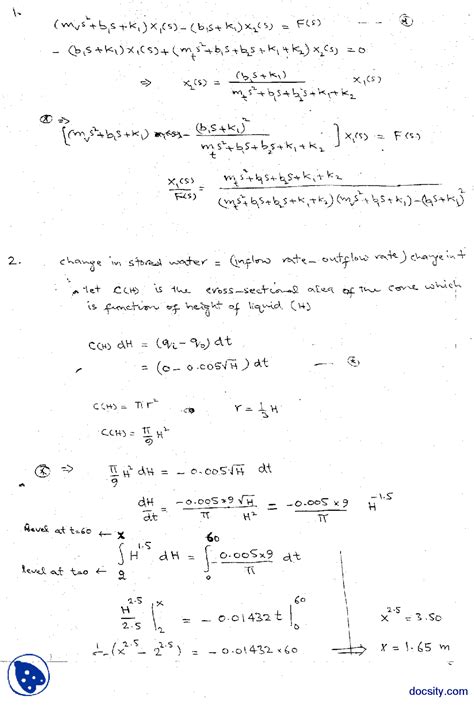 1.
(m_v s² + b₁s + k₁) X₁(s) - (b₁s + k₁) X₂(s) = F(s) --- ⊛
- (b₁s + k₁) X₁(s) + (m_t s² + b₁s + b₂s + k₁ + k₂) X₂(s) = 0
⇒ X₂(s) = (b₁s + k₁) / (m_t s² + b₁s + b₂s + k₁ + k₂) X₁(s)
⊛ ⇒
[(m_v s² + b₁s + k₁) - (b₁s + k₁)² / (m_t s² + b₁s + b₂s + k₁ + k₂)] X₁(s) = F(s)
X₁(s)/F(s) = (m_t s² + b₁s + b₂s + k₁ + k₂) / ((m_t s² + b₁s + b₂s + k₁ + k₂)(m_v s² + b₁s + k₁) - (b₁s + k₁)²)
2. change in stored water = (inflow rate - outflow rate) change in t
let C(H) is the cross-sectional area of the cone which
is function of height of liquid (H)
C(H) dH = (q_i - q_o) dt
= (0 - 0.005√H) dt --- ⊛
C(H) = πr² r = 1/3 H
C(H) = π/9 H²
⊛ ⇒ π/9 H² dH = - 0.005√H dt
dH/dt = -0.005×9/π √H/H² = -0.005×9/π H^-1.5
level at t=60 ← x 60
∫ H^1.5 dH = ∫ -0.005×9/π dt
level at t=0 ← 2 0
H^2.5/2.5 |₂^x = - 0.01432 t |₀^60 x^2.5 = 3.50
(x^2.5 - 2^2.5) = - 0.01432×60 ⇒ x = 1.65 m
docsity.com